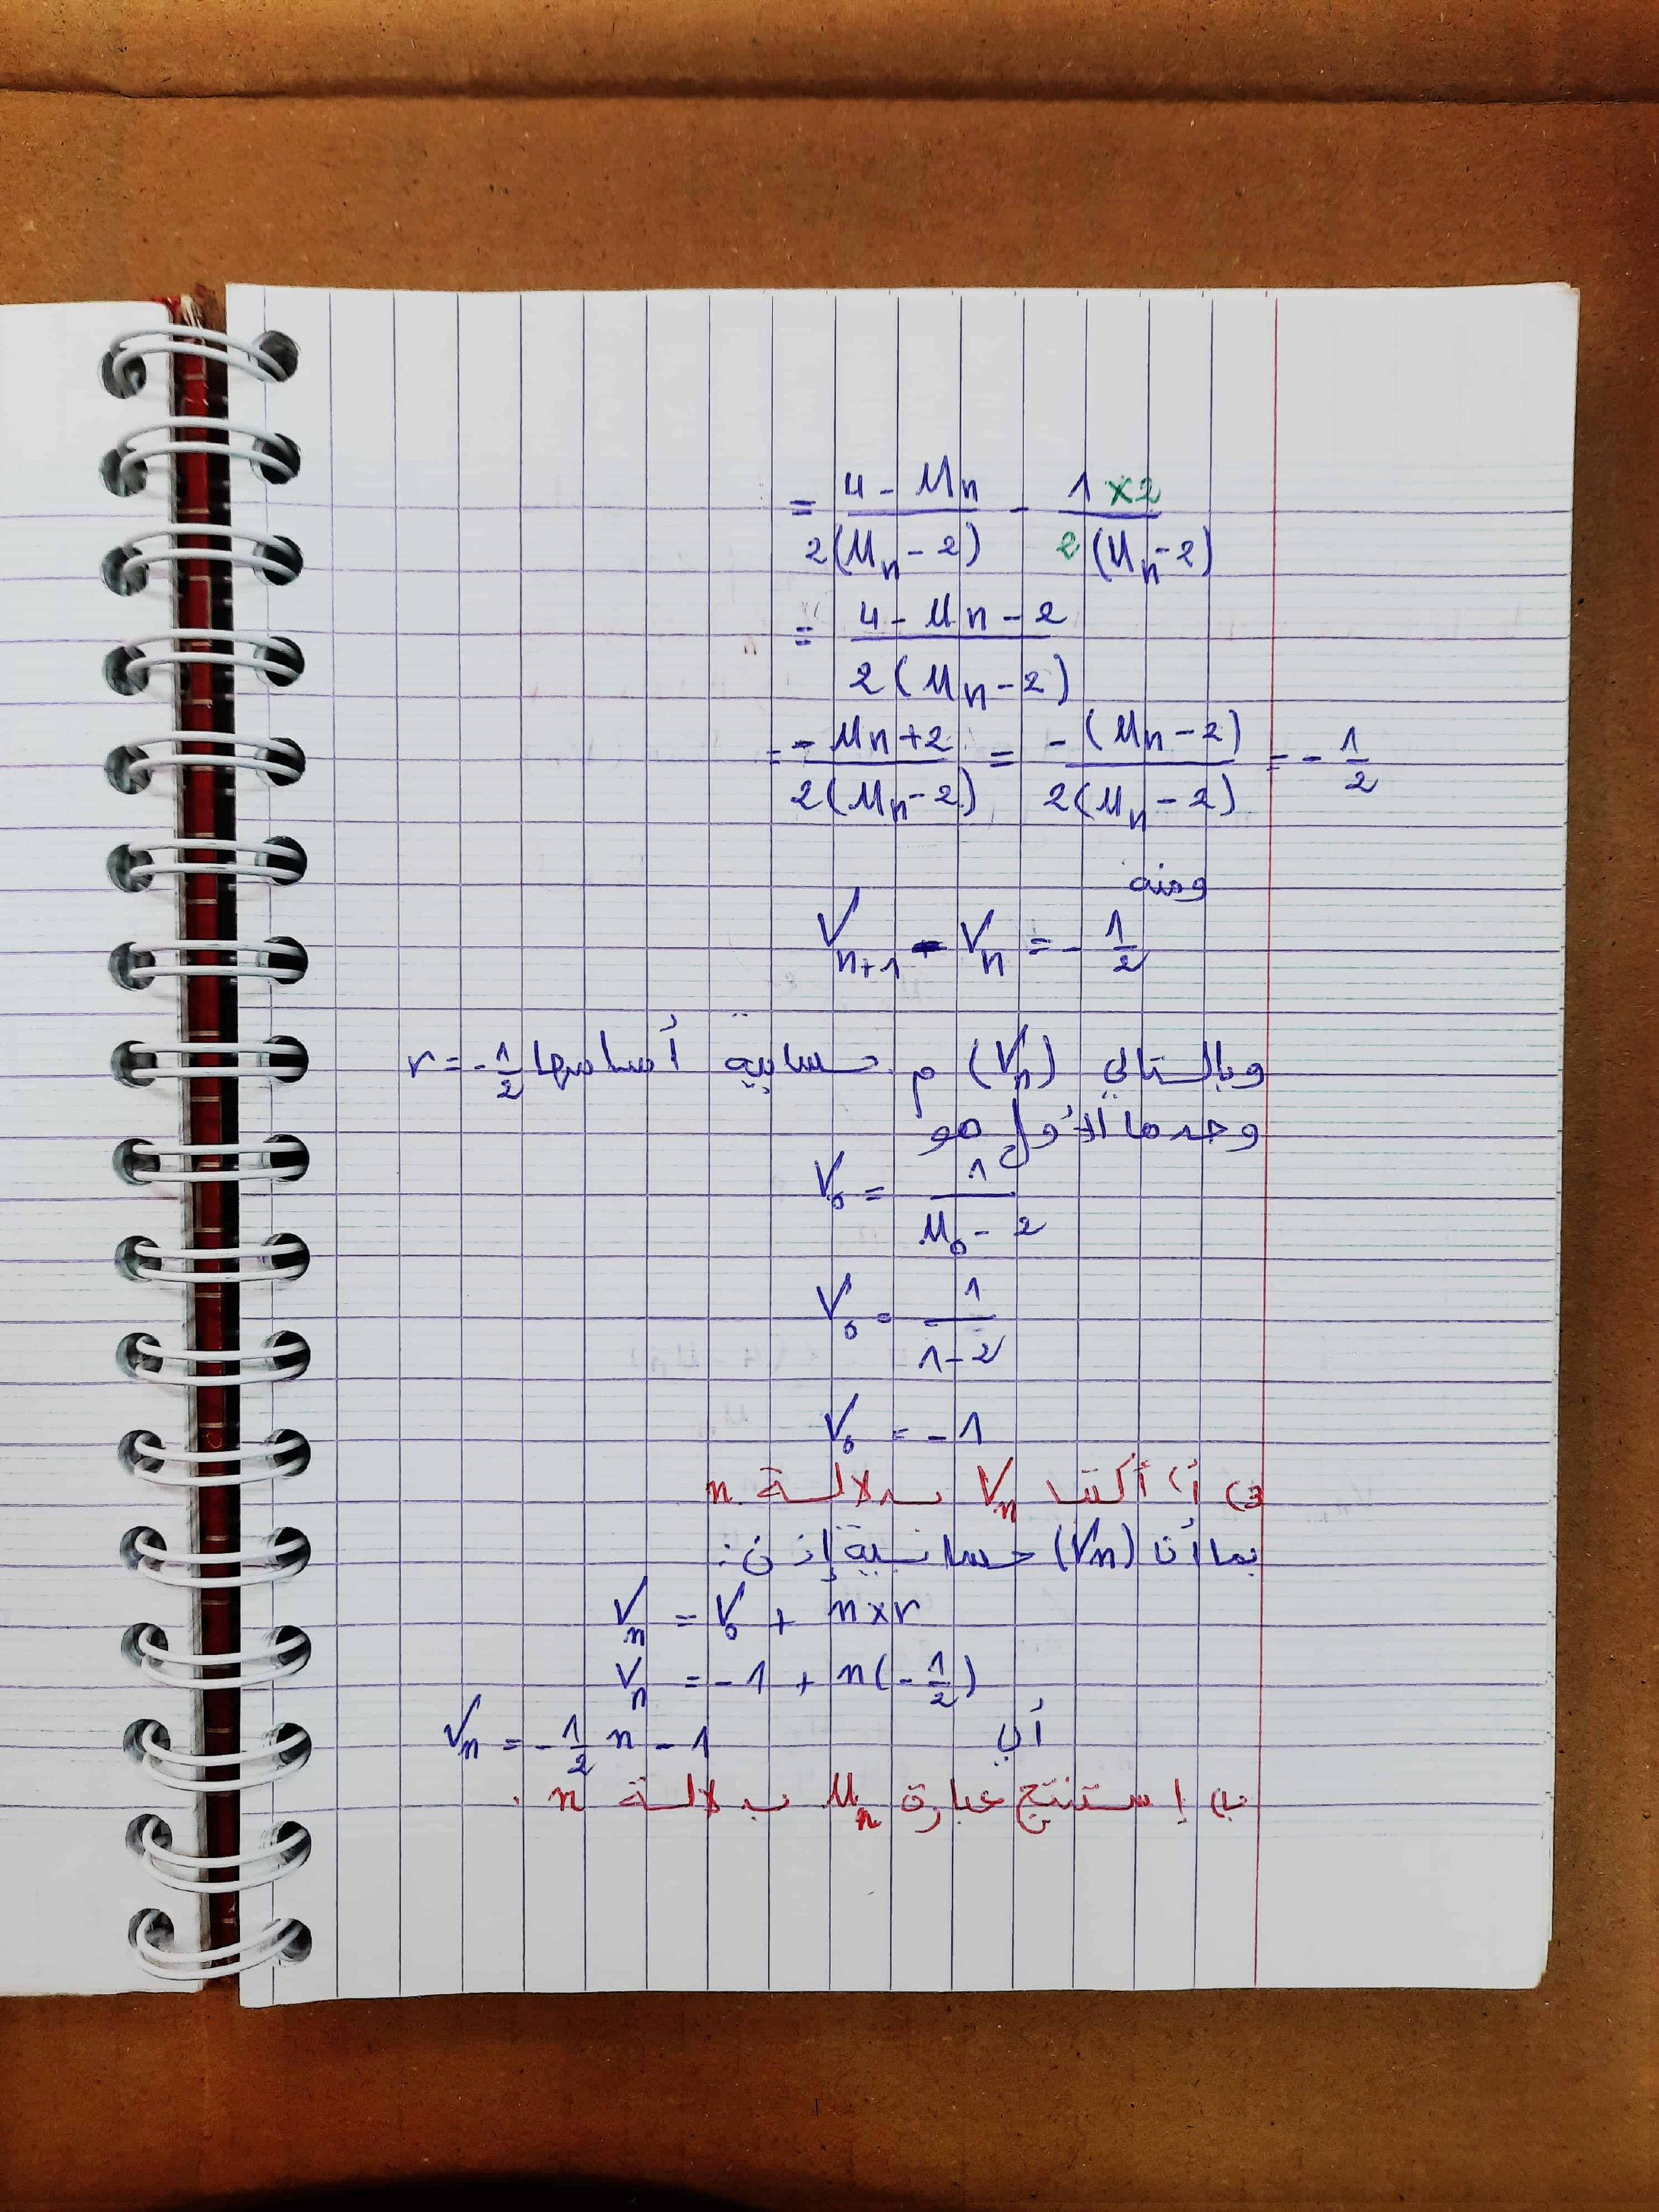 = (4 - Un)/(2(Un - 2)) - (1 × 2)/(2(Un - 2))
= (4 - Un - 2)/(2(Un - 2))
= (-Un + 2)/(2(Un - 2)) = (-(Un - 2))/(2(Un - 2)) = - 1/2
ومنه
Vn+1 - Vn = - 1/2
وبالتالي (Vn) م حسابية أساسها r = - 1/2
وحدها الأول هو
V0 = 1/(U0 - 2)
V0 = 1/(1 - 2)
V0 = - 1
3) أ) أكتب Vn بدلالة n
بما أن (Vn) حسابية إذن :
Vn = V0 + n × r
Vn = - 1 + n(- 1/2)
أي Vn = - 1/2 n - 1
ب) إستنتج عبارة Un بدلالة n .